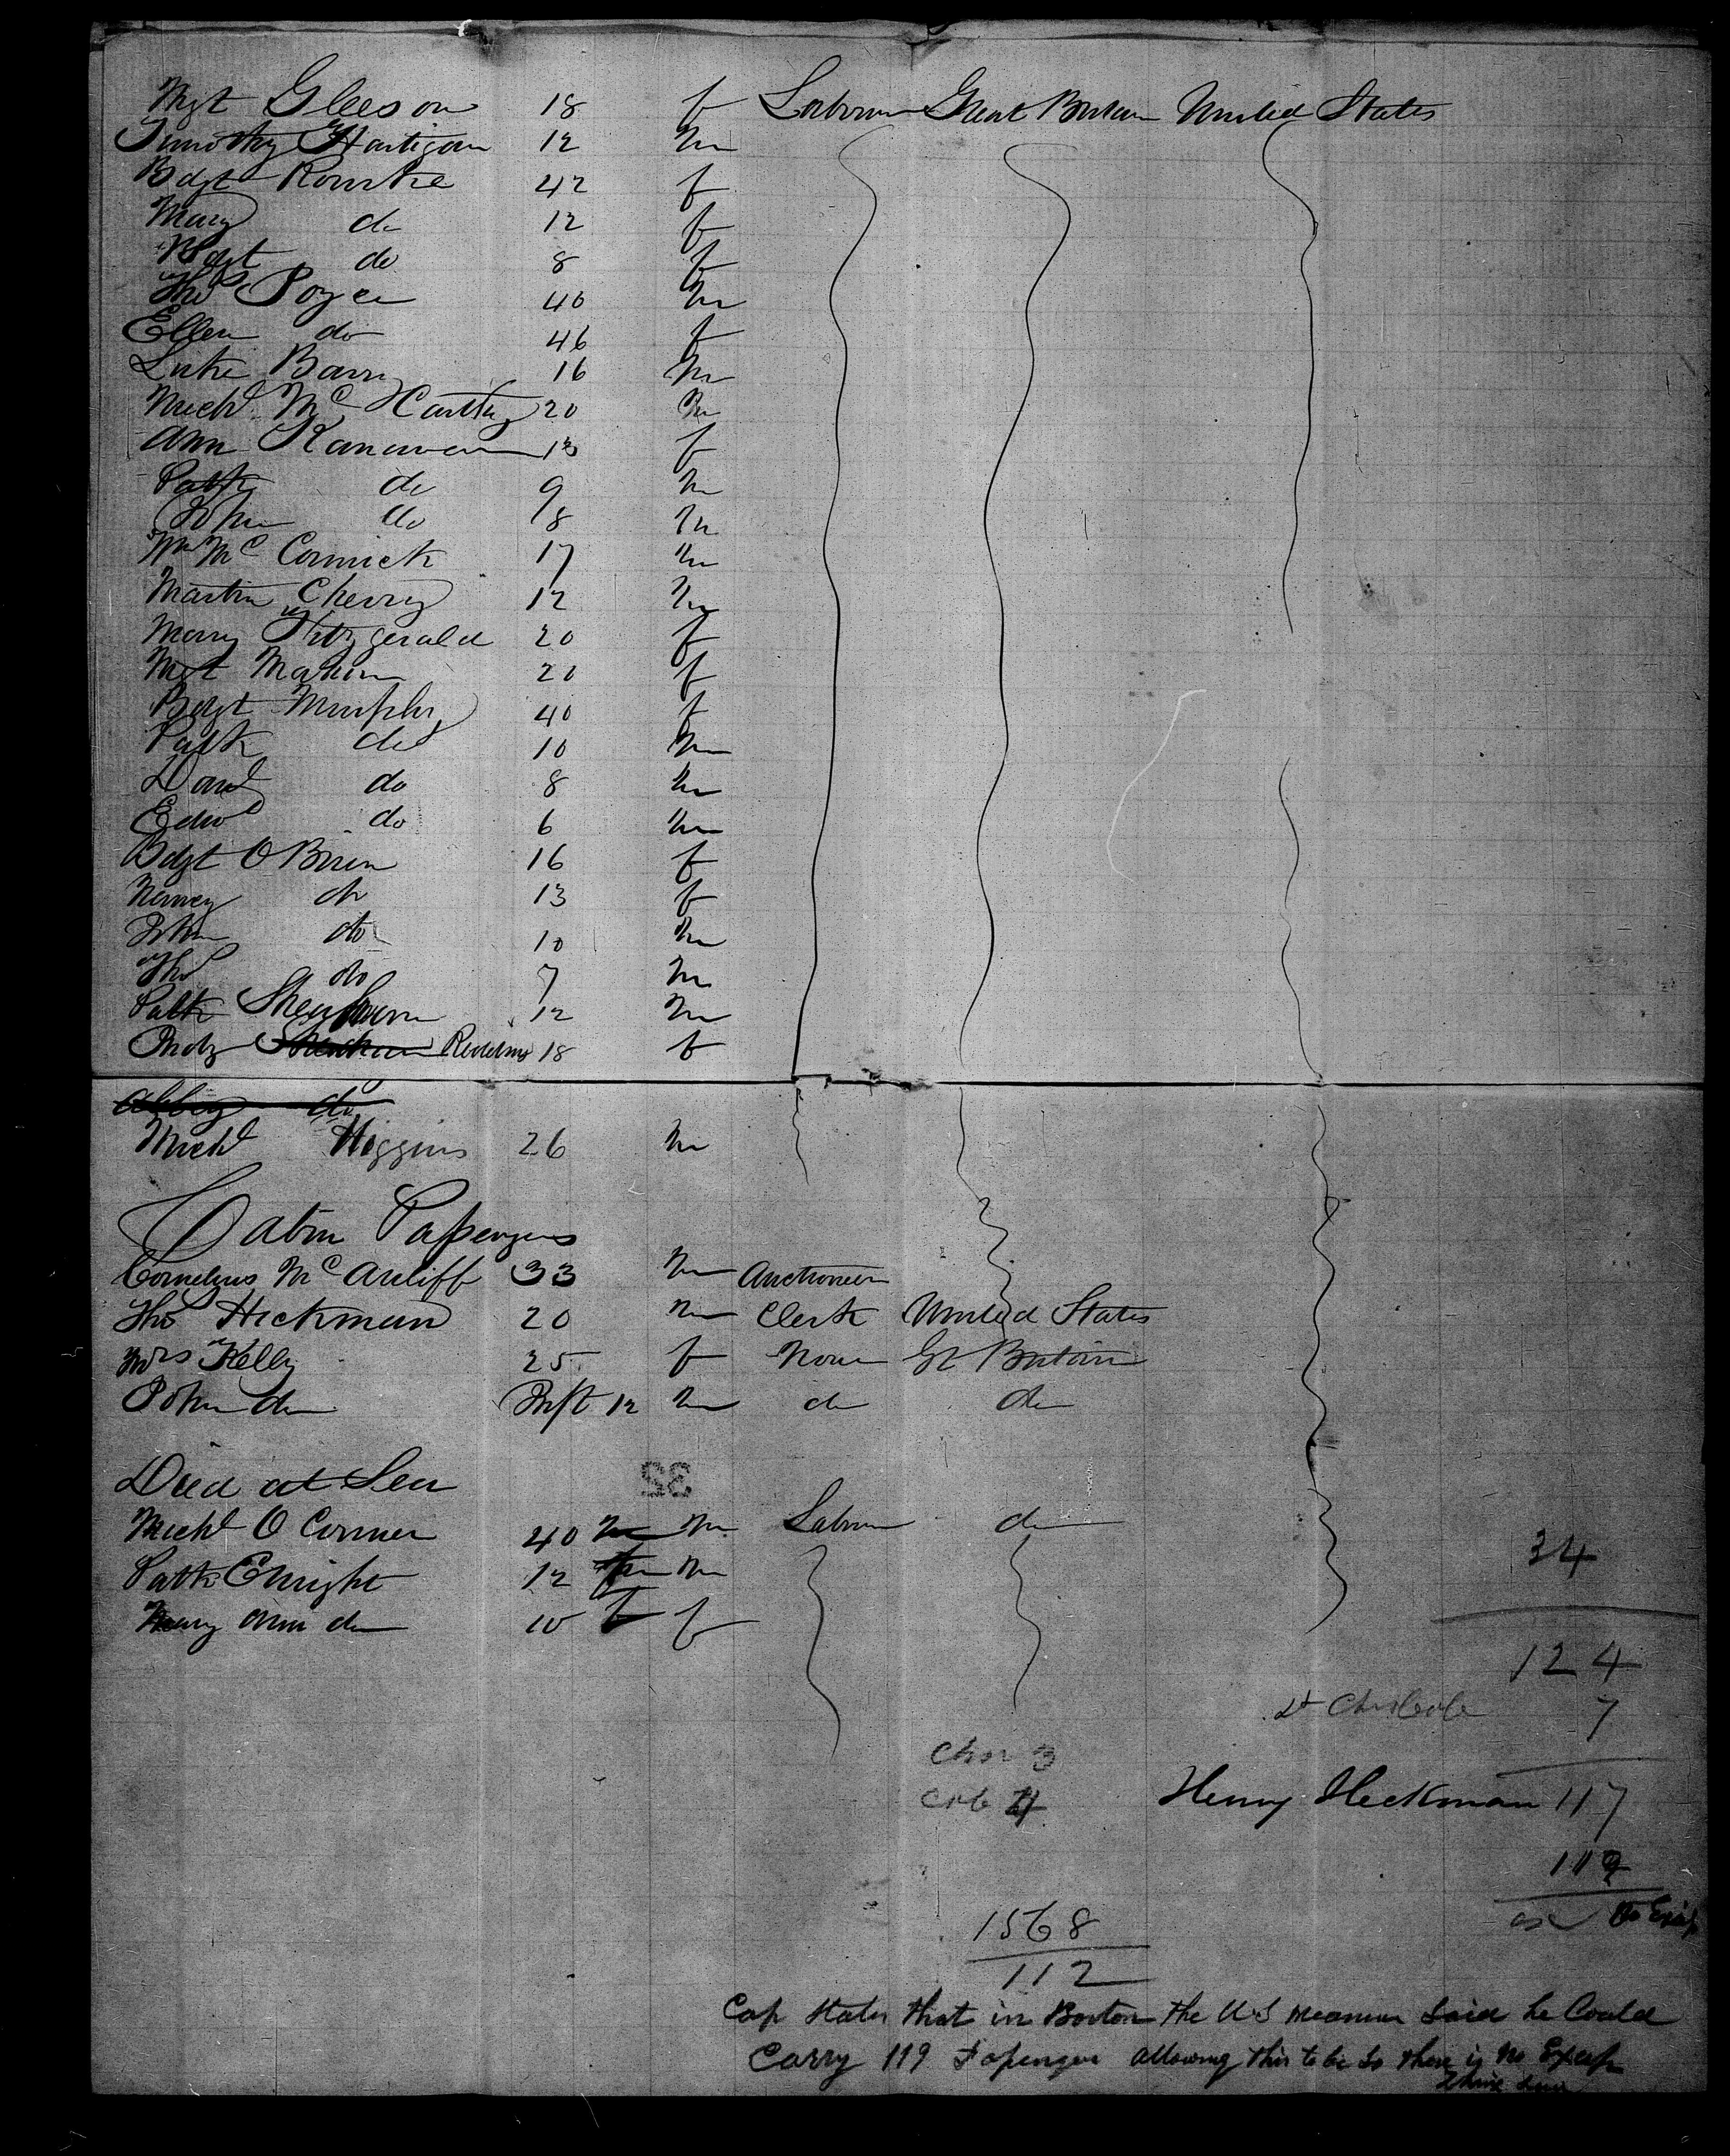 Mgt Gleeson 18 f Labourer Great Britain United States
Timothy Hartigan 12 m
Bdgt Rourke 42 f
Mary do 12 f
Bdgt do 8 f
Thos Joyce 40 m
Ellen do 46 f
Luke Barry 16 m
Michl McCarthy 20 m
Ann Kanavan 13 f
Patk do 9 m
John do 8 m
Wm McCormick 17 m
Martin Cherry 12 m
Mary Fitzgerald 20 f
Mgt Mahon 20 f
Bdgt Murphy 40 f
Patk do 10 m
Danl do 8 m
Edwd do 6 m
Bdgt O Brien 16 f
Nancy do 13 f
John do 10 m
Thos do 7 m
Patk 12 m
18 f
Abby do
Michl Higgins 26 m
Cabin Passengers
Cornelius McAuliff 33 m Auctioneer
Thos Hickman 20 m Clerk United States
Mrs Kelly 25 f None Gt Britain
John do Inft 12 m do do
Died at Sea
32
Michl O Conner 40 m m Labourer do
34
Patk Enright 12 m m
Mary Ann do 10 f f
124
7
3
4 Henry Heckman 117
119
no Excess
1568
112
Cap states that in Boston the US measurer said he Could
Carry 119 Passenger allowing this to be so there is no Excess